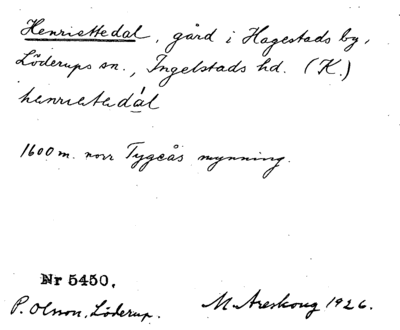 Henriettedal, gård i Hagestads by,
Löderups sn., Ingelstads hd. (K.)
henrietedál
1600 m. norr Tygeås mynning.
Nr 5450.
P. Olsson, Löderup. M. Areskoug 1926.